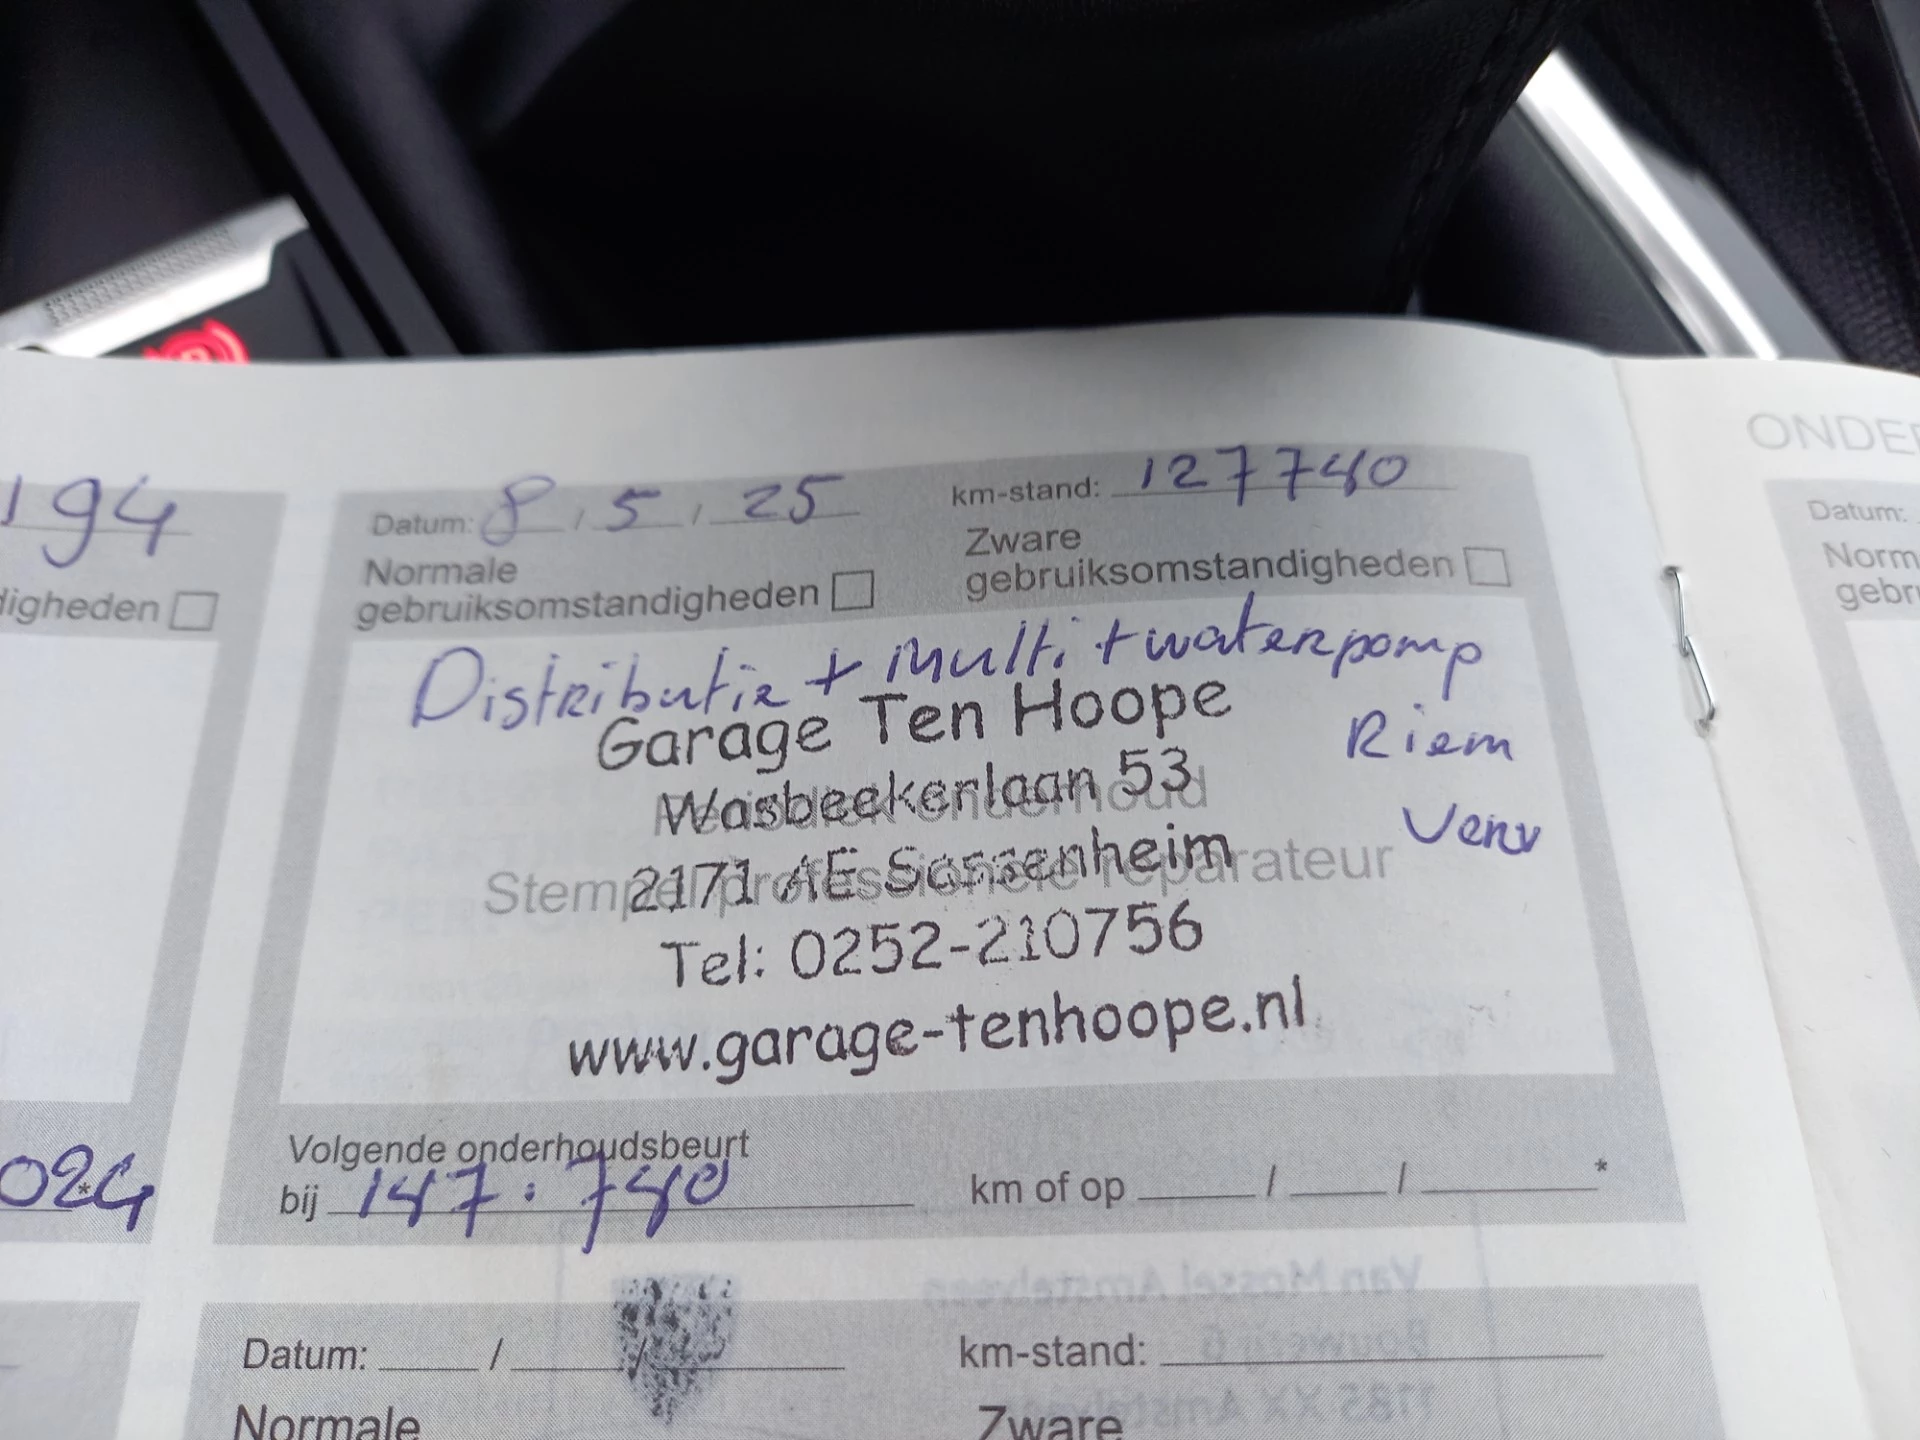 194
digheden
024
*
Datum: 8 / 5 / 25
km-stand: 127740
Normale
gebruiksomstandigheden
Zware
gebruiksomstandigheden
Distributie + Multi + waterpomp
Riem
Verv
Garage Ten Hoope
Wasbeekerlaan 53
2171 AE Sassenheim
Stempel professionele reparateur
Tel: 0252-210756
www.garage-tenhoope.nl
Volgende onderhoudsbeurt
bij 147.740 km of op / / *
Datum: / /
km-stand:
Normale
Zware
ONDE
Datum:
Norm
gebru
Van Mossel Amstelveen
Bouwerij 6
1185 XX Amstelveen